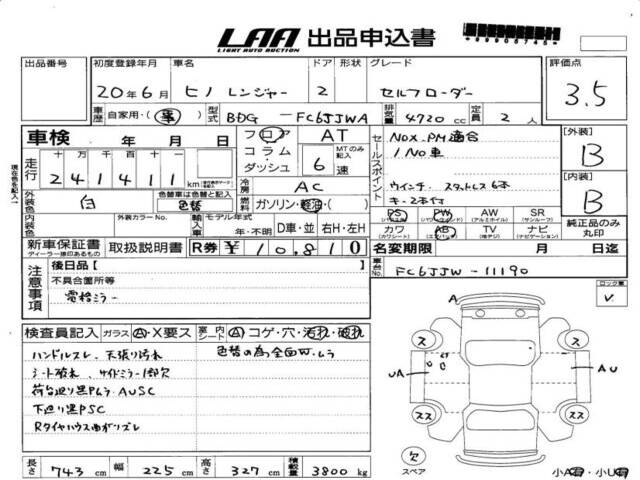 LAA 出品申込書
LIGHT AUTO AUCTION
*99905745*
出品番号 初度登録年月 車名 ドア 形状 グレード 評価点
20年6月 ヒノレンジャー 2 セルフローダー 3.5
車歴 自家用・(事) 型式 BDG-FC6JJWA 排気量 4720cc 定員 2人
車検 年 月 日
フロア AT
コラム MTのみ記入
ダッシュ 6速
走行 十万 万 千 百 十 一
241411 km
セールスポイント
NOX.PM適合
1No車
ウインチ スタットレス6本
キー2本付
[外装] B
[内装] B
外装色 白 色替車は色替と記入 色替
冷房 AC
燃料 ガソリン・軽油・( )
PS PW AW SR
カワ AB TV ナビ
純正品のみ丸印
内装色 外装カラーNo. 輸入車 モデル年式 年・不明 D車・並 右H・左H
新車保証書 取扱説明書 R券 ¥10,810
ディーラー捺印あるもの
名変期限 月 日迄
現在色を記入
車台No. FC6JJW-11190
注意事項
後日品[ ]
不具合箇所等
電格ミラー
ロック数
V
検査員記入 ガラス A・X要ス 室内 シート A コゲ・穴・汚れ・破れ
ハンドルスレ、天張り汚れ
色替の為全面W.ムラ
シート破れ、サイドミラー1部欠
荷台廻り黒Pムラ AUSC
下廻り黒PSC
Rタイヤハウス曲がりズレ
A
ス ス
UA C AU
スス スス
欠
スペア
小A有・小U有
長さ 743cm 幅 225cm 高さ 327cm 積載量 3800kg